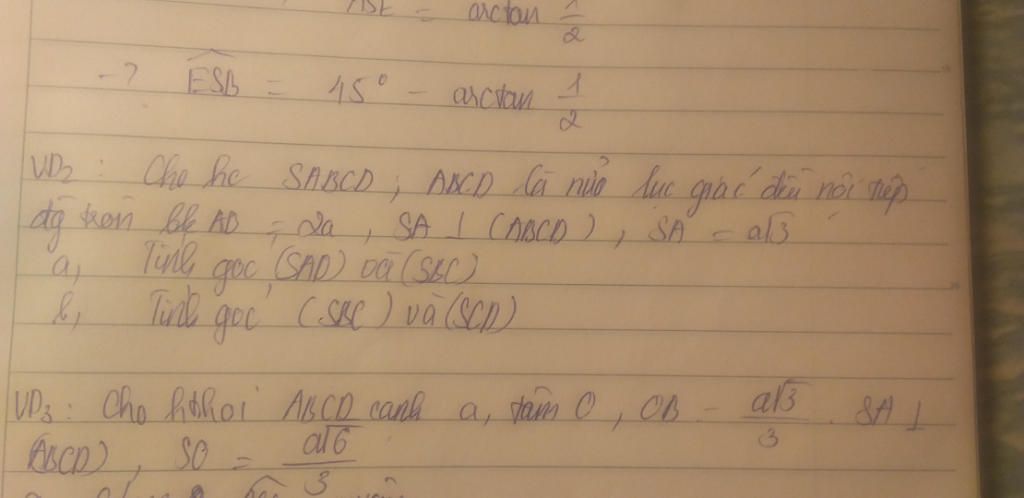 ASE = arctan 1/2
→ ESB = 45° - arctan 1/2
VD2 : Cho hc SABCD ; ABCD là nửa lục giác đều nội tiếp
đg tròn đk AD = 2a , SA ⊥ (ABCD) , SA = a√3
a, Tính góc (SAD) và (SBC)
b, Tính góc (SBC) và (SCD)
VD3 : Cho hthoi ABCD cạnh a, tâm O , OB = a√3/3 . SA ⊥
(ABCD) , SO = a√6/3